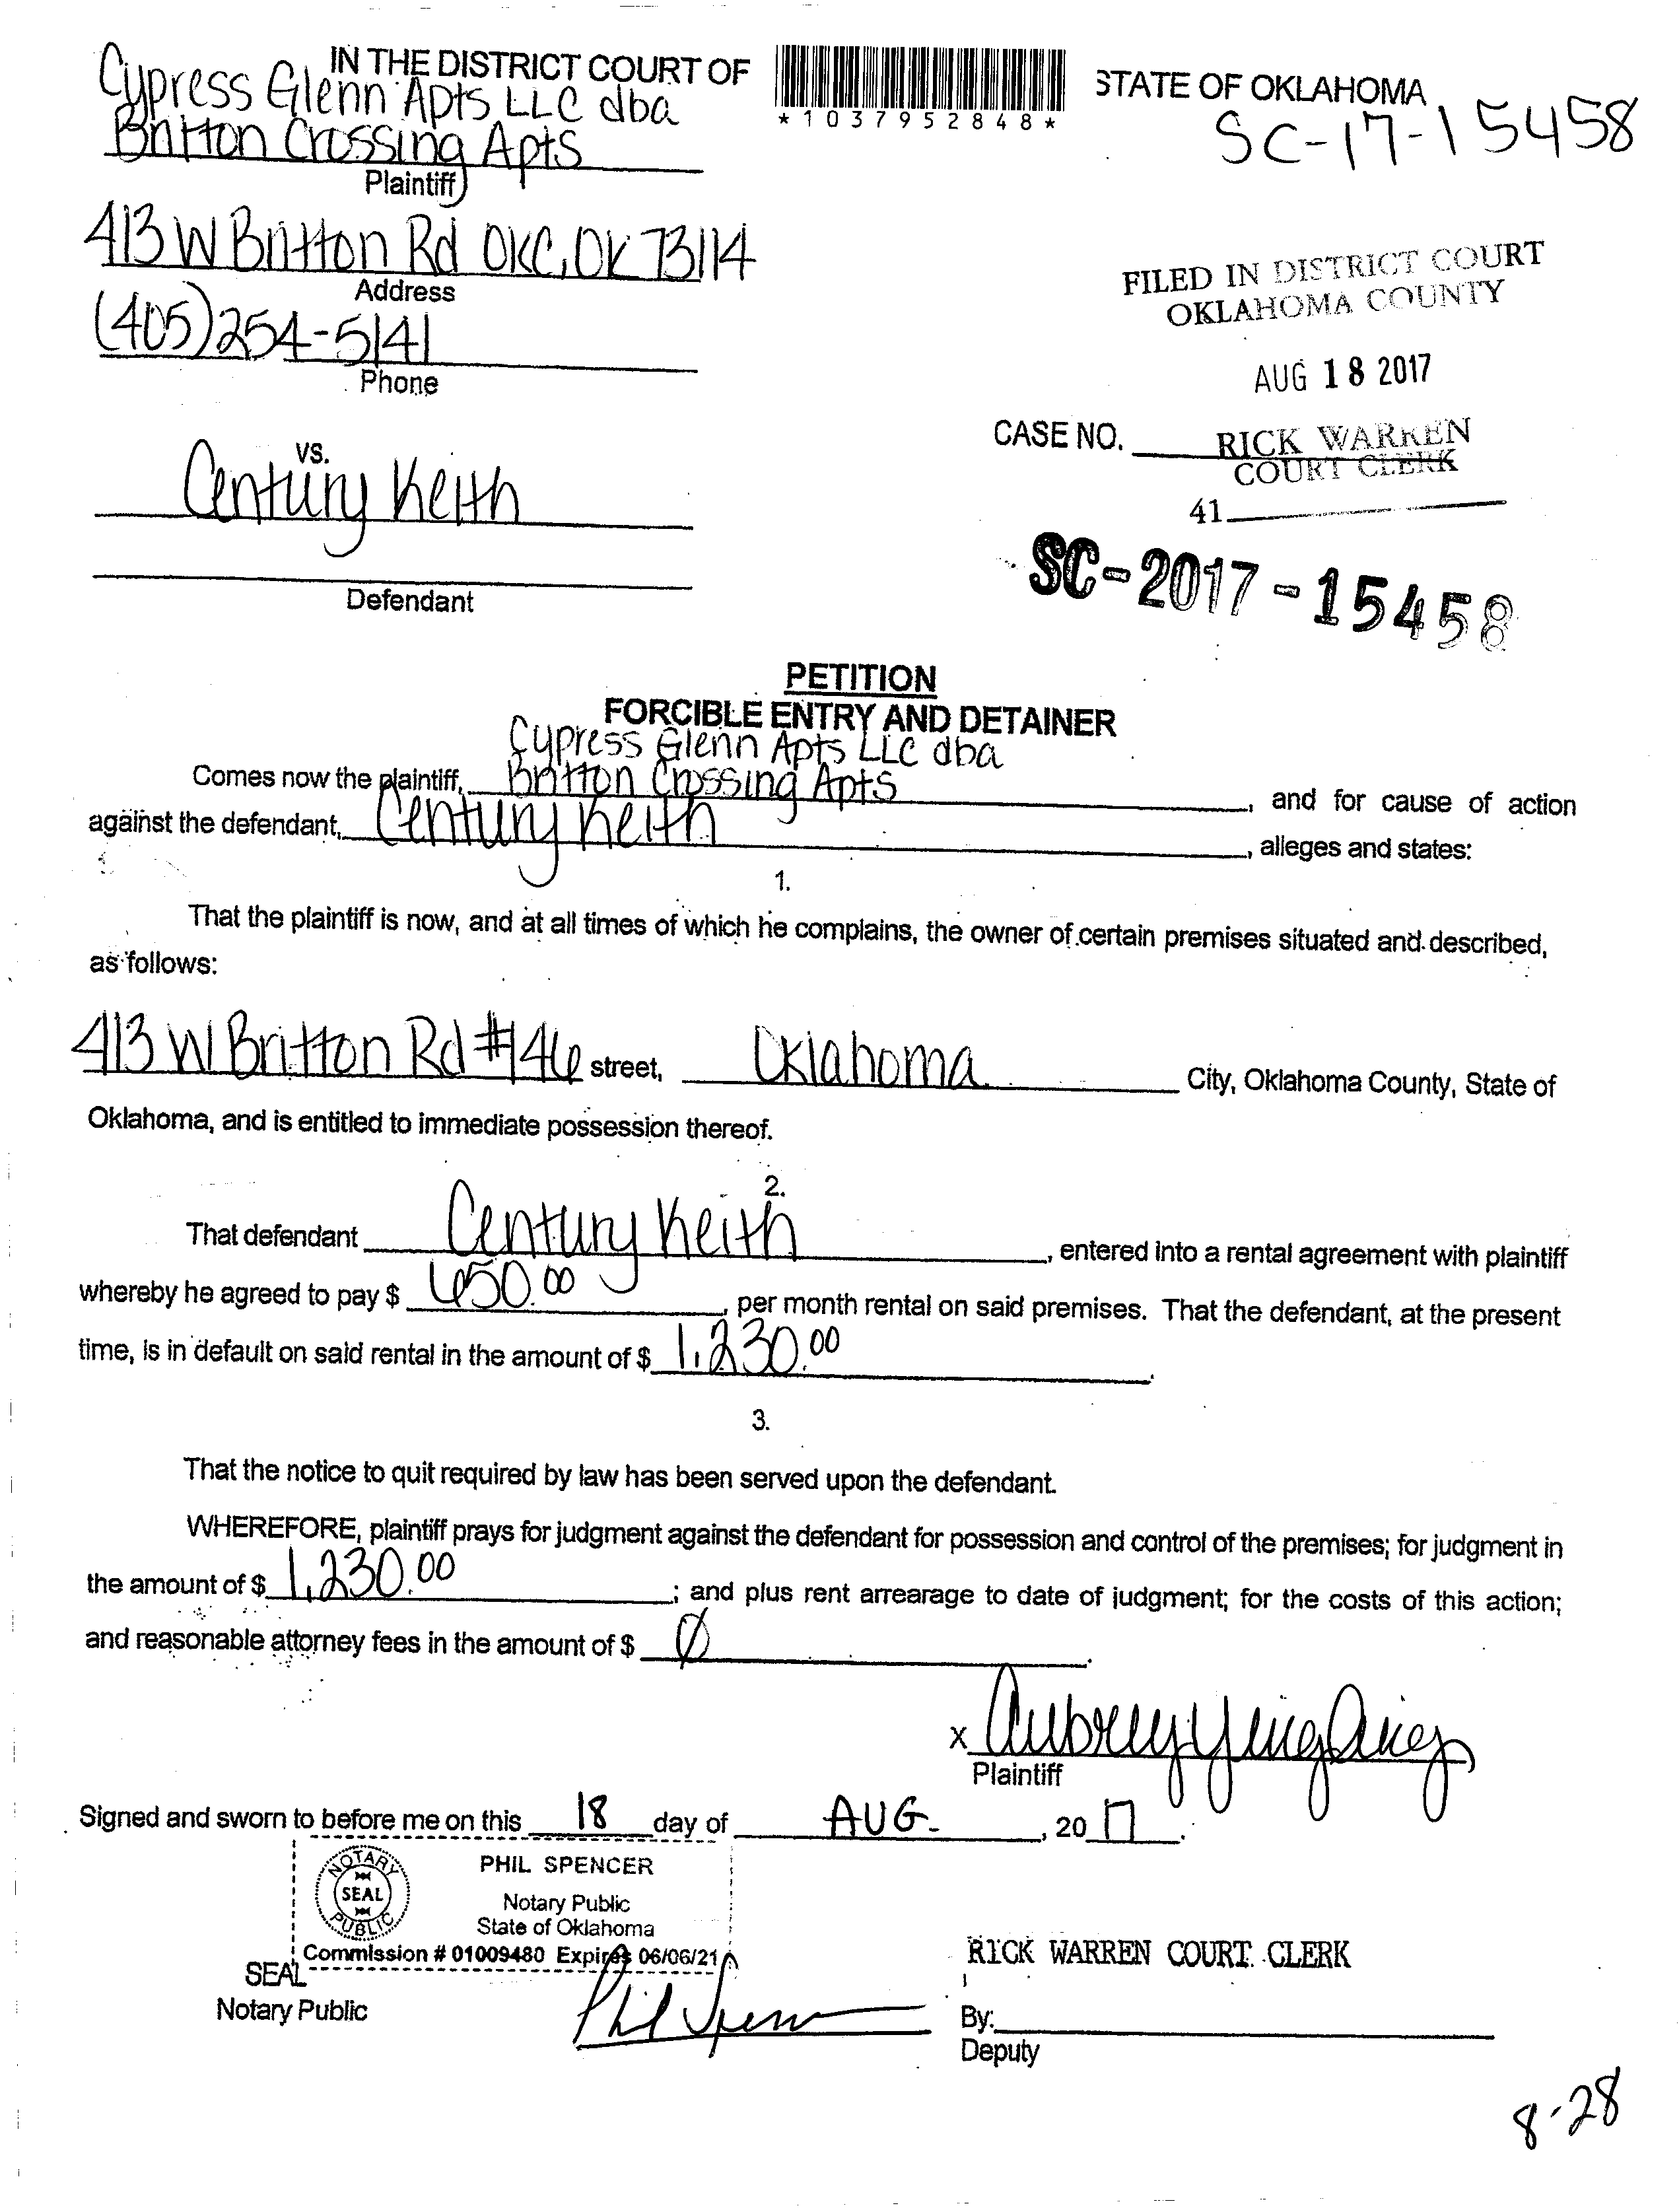 IN THE DISTRICT COURT OF
STATE OF OKLAHOMA
Cypress Glenn Apts LLC dba
Britton Crossing Apts
Plaintiff
*1037952848*
SC-17-15458
413 W Britton Rd OKC, OK 73114
Address
(405)254-5141
Phone
FILED IN DISTRICT COURT
OKLAHOMA COUNTY
AUG 18 2017
RICK WARREN
COURT CLERK
41
CASE NO.
vs.
Century Keith
Defendant
SC-2017-15458
PETITION
FORCIBLE ENTRY AND DETAINER
Cypress Glenn Apts LLC dba
Comes now the plaintiff, Britton Crossing Apts, and for cause of action
against the defendant, Century Keith, alleges and states:
1.
That the plaintiff is now, and at all times of which he complains, the owner of certain premises situated and described,
as follows:
413 W Britton Rd #146 street, Oklahoma City, Oklahoma County, State of
Oklahoma, and is entitled to immediate possession thereof.
2.
That defendant Century Keith, entered into a rental agreement with plaintiff
whereby he agreed to pay $ 650.00, per month rental on said premises. That the defendant, at the present
time, is in default on said rental in the amount of $ 1,230.00.
3.
That the notice to quit required by law has been served upon the defendant.
WHEREFORE, plaintiff prays for judgment against the defendant for possession and control of the premises; for judgment in
the amount of $ 1,230.00; and plus rent arrearage to date of judgment; for the costs of this action;
and reasonable attorney fees in the amount of $ Ø.
x Aubrey
Plaintiff
Signed and sworn to before me on this 18 day of AUG., 2017.
NOTARY PUBLIC
SEAL
PHIL SPENCER
Notary Public
State of Oklahoma
Commission # 01009480 Expires 06/06/21
SEAL
Notary Public
Phil Spencer
RICK WARREN COURT CLERK
By:
Deputy
8-28